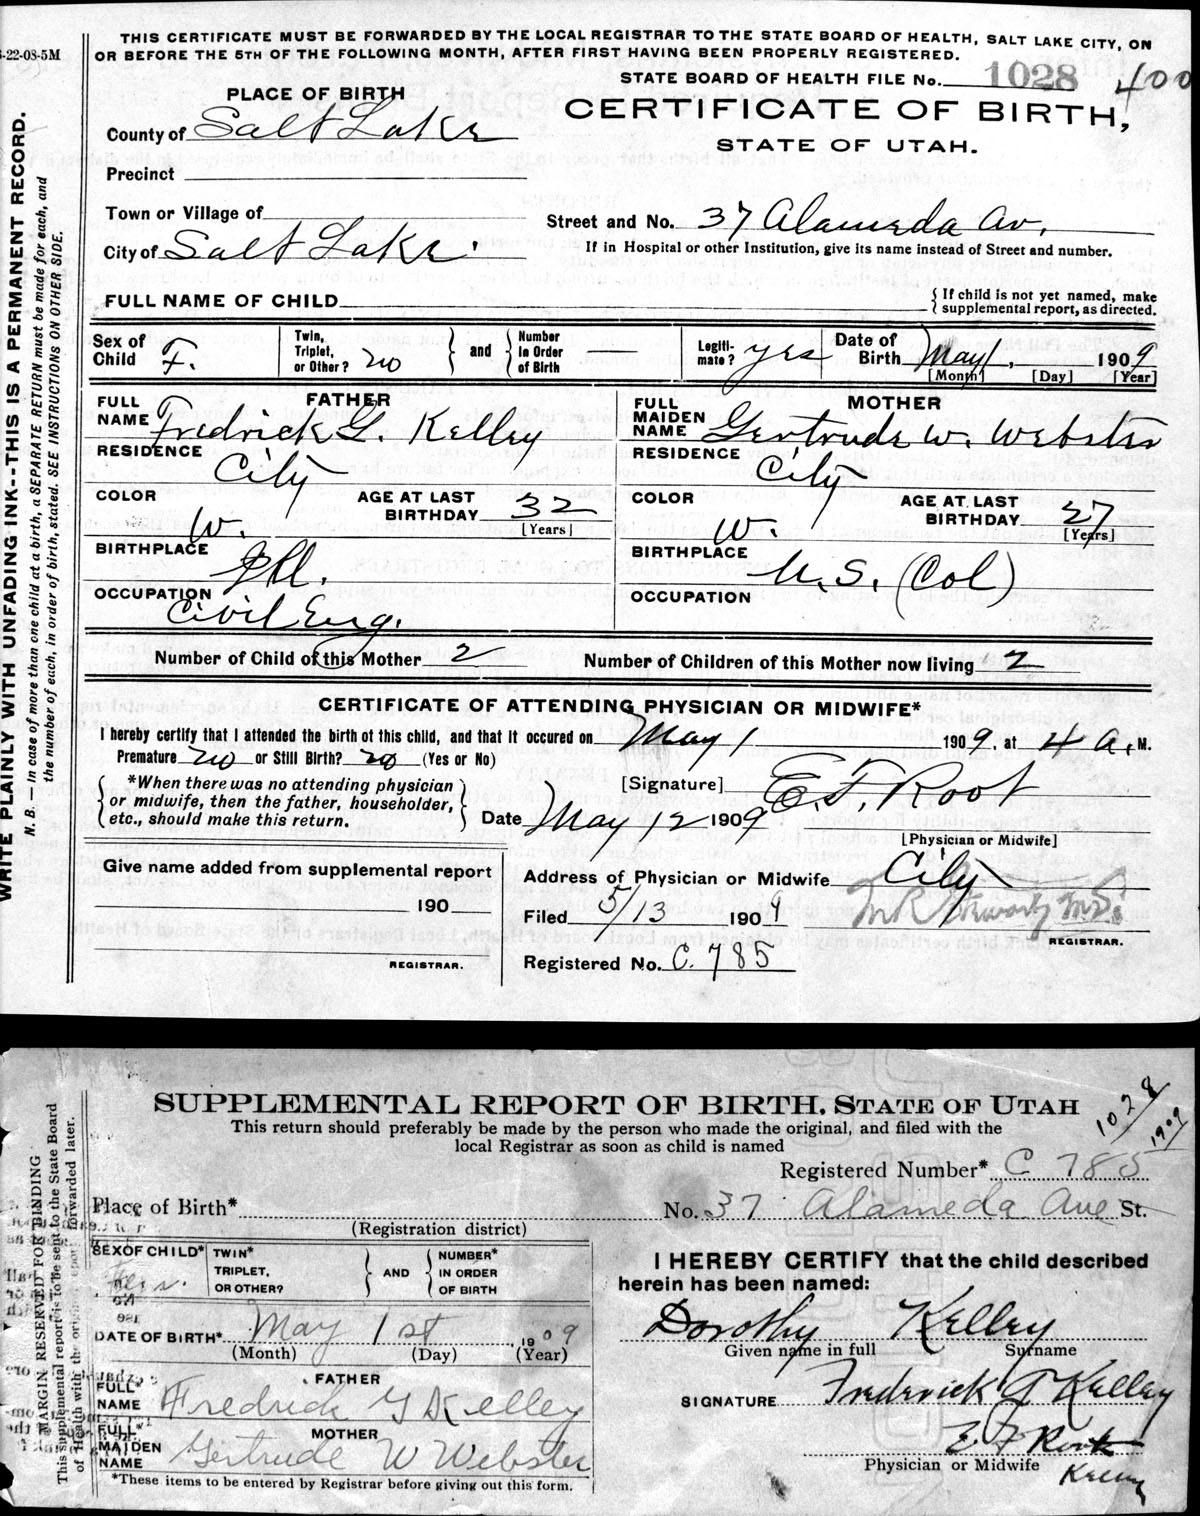 THIS CERTIFICATE MUST BE FORWARDED BY THE LOCAL REGISTRAR TO THE STATE BOARD OF HEALTH, SALT LAKE CITY, ON
-22-08-5M
OR BEFORE THE 5TH OF THE FOLLOWING MONTH, AFTER FIRST HAVING BEEN PROPERLY REGISTERED.
STATE BOARD OF HEALTH FILE No. 1028 400
PLACE OF BIRTH
CERTIFICATE OF BIRTH,
County of Salt Lake
STATE OF UTAH.
Precinct
Town or Village of
Street and No. 37 Alameda Av.
City of Salt Lake.
If in Hospital or other Institution, give its name instead of Street and number.
FULL NAME OF CHILD
{ If child is not yet named, make
supplemental report, as directed.
Sex of Child F.
Twin, Triplet, or Other? no } and { Number in Order of Birth
Legiti-mate? yes
Date of Birth May 1, 1909
[Month] [Day] [Year]
FATHER
FULL NAME Fredrick G. Kelley
MOTHER
FULL MAIDEN NAME Gertrude W. Webster
RESIDENCE City
RESIDENCE City
COLOR W.
AGE AT LAST BIRTHDAY 32
[Years]
COLOR W.
AGE AT LAST BIRTHDAY 27
[Years]
BIRTHPLACE Ill.
BIRTHPLACE U.S. (Col)
OCCUPATION Civil Eng.
OCCUPATION
Number of Child of this Mother 2
Number of Children of this Mother now living 2
CERTIFICATE OF ATTENDING PHYSICIAN OR MIDWIFE*
I hereby certify that I attended the birth of this child, and that it occured on May 1 1909, at 4 A. M.
Premature no or Still Birth? no (Yes or No)
{ *When there was no attending physician
or midwife, then the father, householder,
etc., should make this return. }
[Signature] E. F. Root
Date May 12 1909
[Physician or Midwife]
Give name added from supplemental report
190
REGISTRAR.
Address of Physician or Midwife City
Filed 5/13 1909
REGISTRAR.
Registered No. C. 785
WRITE PLAINLY WITH UNFADING INK--THIS IS A PERMANENT RECORD.
N. B. — In case of more than one child at a birth, a SEPARATE RETURN must be made for each, and
the number of each, in order of birth, stated. SEE INSTRUCTIONS ON OTHER SIDE.
SUPPLEMENTAL REPORT OF BIRTH. STATE OF UTAH
This return should preferably be made by the person who made the original, and filed with the
local Registrar as soon as child is named
1028
1909
Registered Number* C 785
Place of Birth*
No. 37 Alameda Ave St.
(Registration district)
SEX OF CHILD* Fem.
TWIN* TRIPLET, OR OTHER? } AND { NUMBER* IN ORDER OF BIRTH
I HEREBY CERTIFY that the child described
herein has been named:
Dorothy Kelley
Given name in full Surname
DATE OF BIRTH* May 1st 1909
(Month) (Day) (Year)
FATHER
FULL* NAME Fredrick G Kelley
SIGNATURE Frederick G Kelley
MOTHER
FULL* MAIDEN NAME Gertrude W Webster
E F Root
Physician or Midwife
Kelley
*These items to be entered by Registrar before giving out this form.
MARGIN RESERVED FOR BINDING
This supplemental report is to be sent to the State Board
of Health with the original report forwarded later.